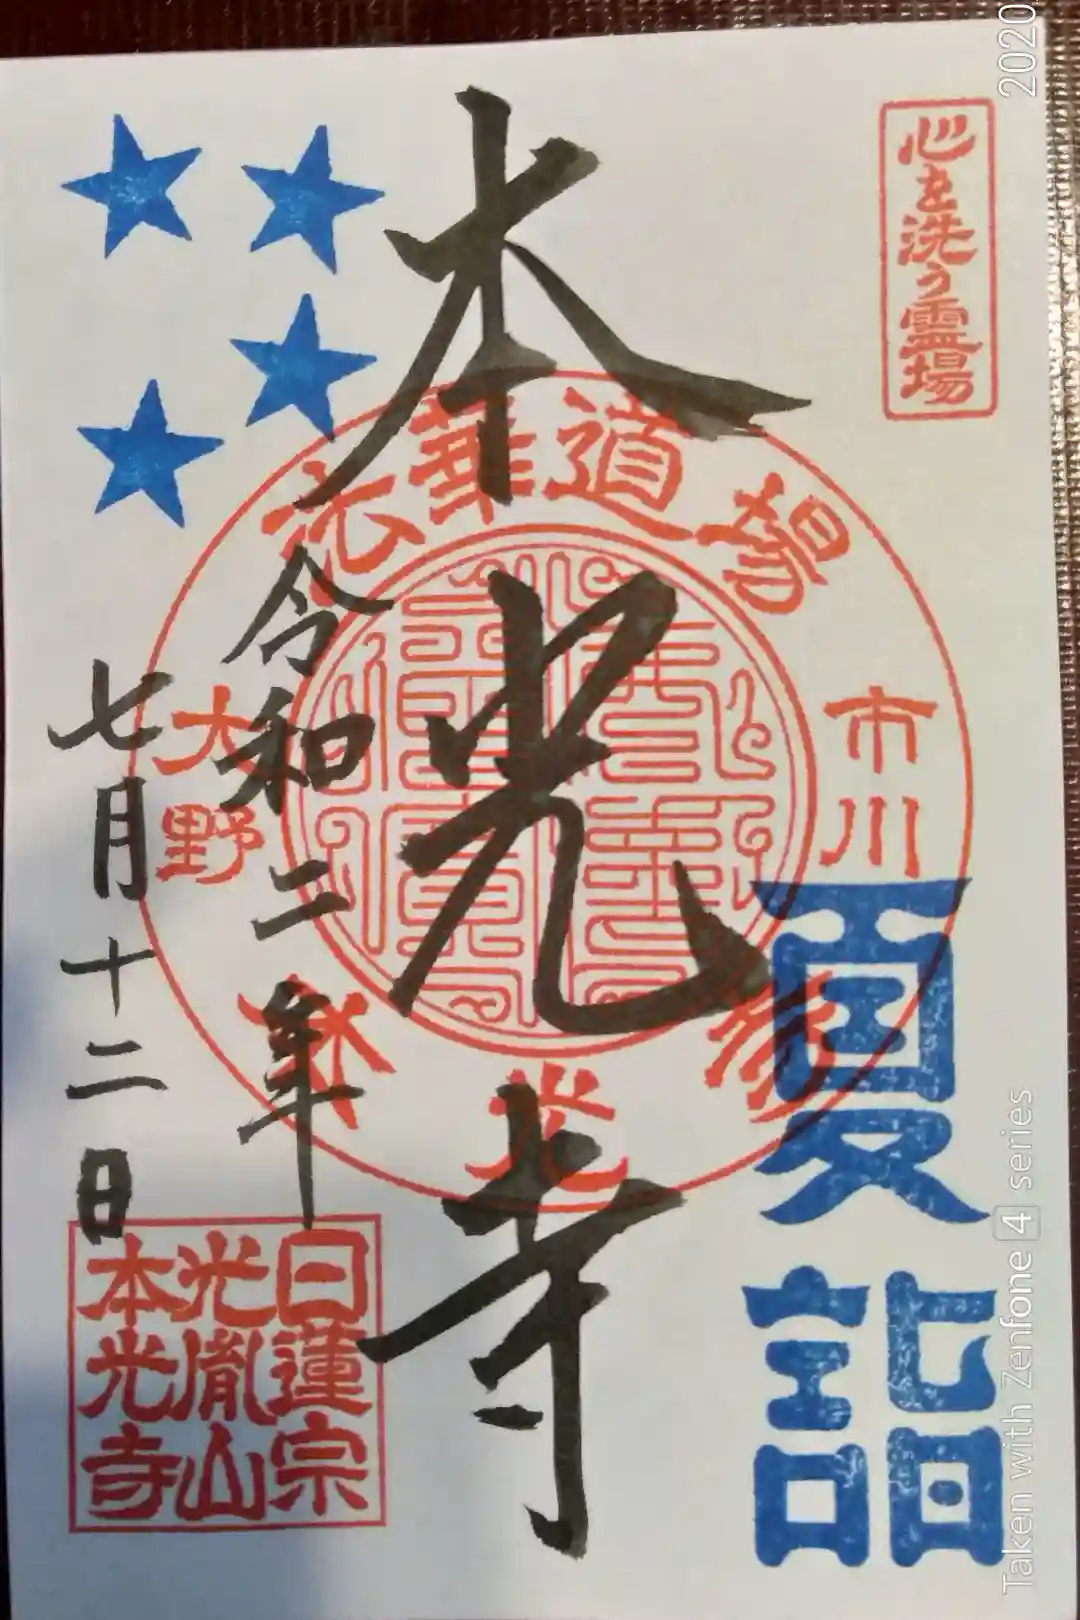 心を洗う霊場
夏詣
本光寺
法華道場
市川
大野
令和二年
七月十二日
日蓮宗
光胤山
本光寺
2020
Taken with Zenfone 4 series